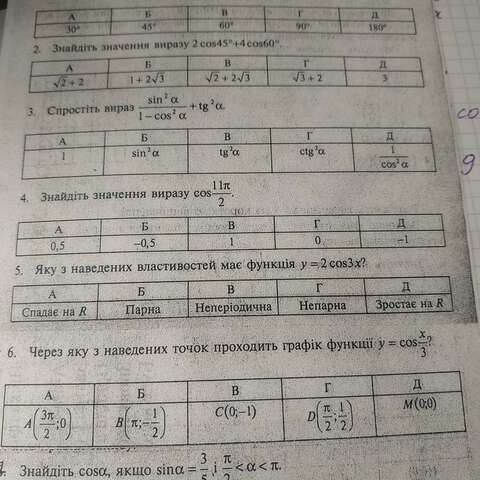 А Б В Г Д
30° 45° 60° 90° 180°
2. Знайдіть значення виразу 2 cos45°+4cos60°.
А Б В Г Д
√2 + 2 1 + 2√3 √2 + 2√3 √3 + 2 3
3. Спростіть вираз sin²α / (1 − cos²α) + tg²α.
А Б В Г Д
1 sin²α tg²α ctg²α 1/cos²α
4. Знайдіть значення виразу cos 11π/2.
А Б В Г Д
0,5 −0,5 1 0 −1
5. Яку з наведених властивостей має функція y = 2 cos3x?
А Б В Г Д
Спадає на R Парна Неперіодична Непарна Зростає на R
6. Через яку з наведених точок проходить графік функції y = cos x/3?
А Б В Г Д
A(3π/2;0) B(π;−1/2) C(0;−1) D(π/2;1/2) M(0;0)
Знайдіть cosα, якщо sinα = 3/5 і π/2 < α < π.